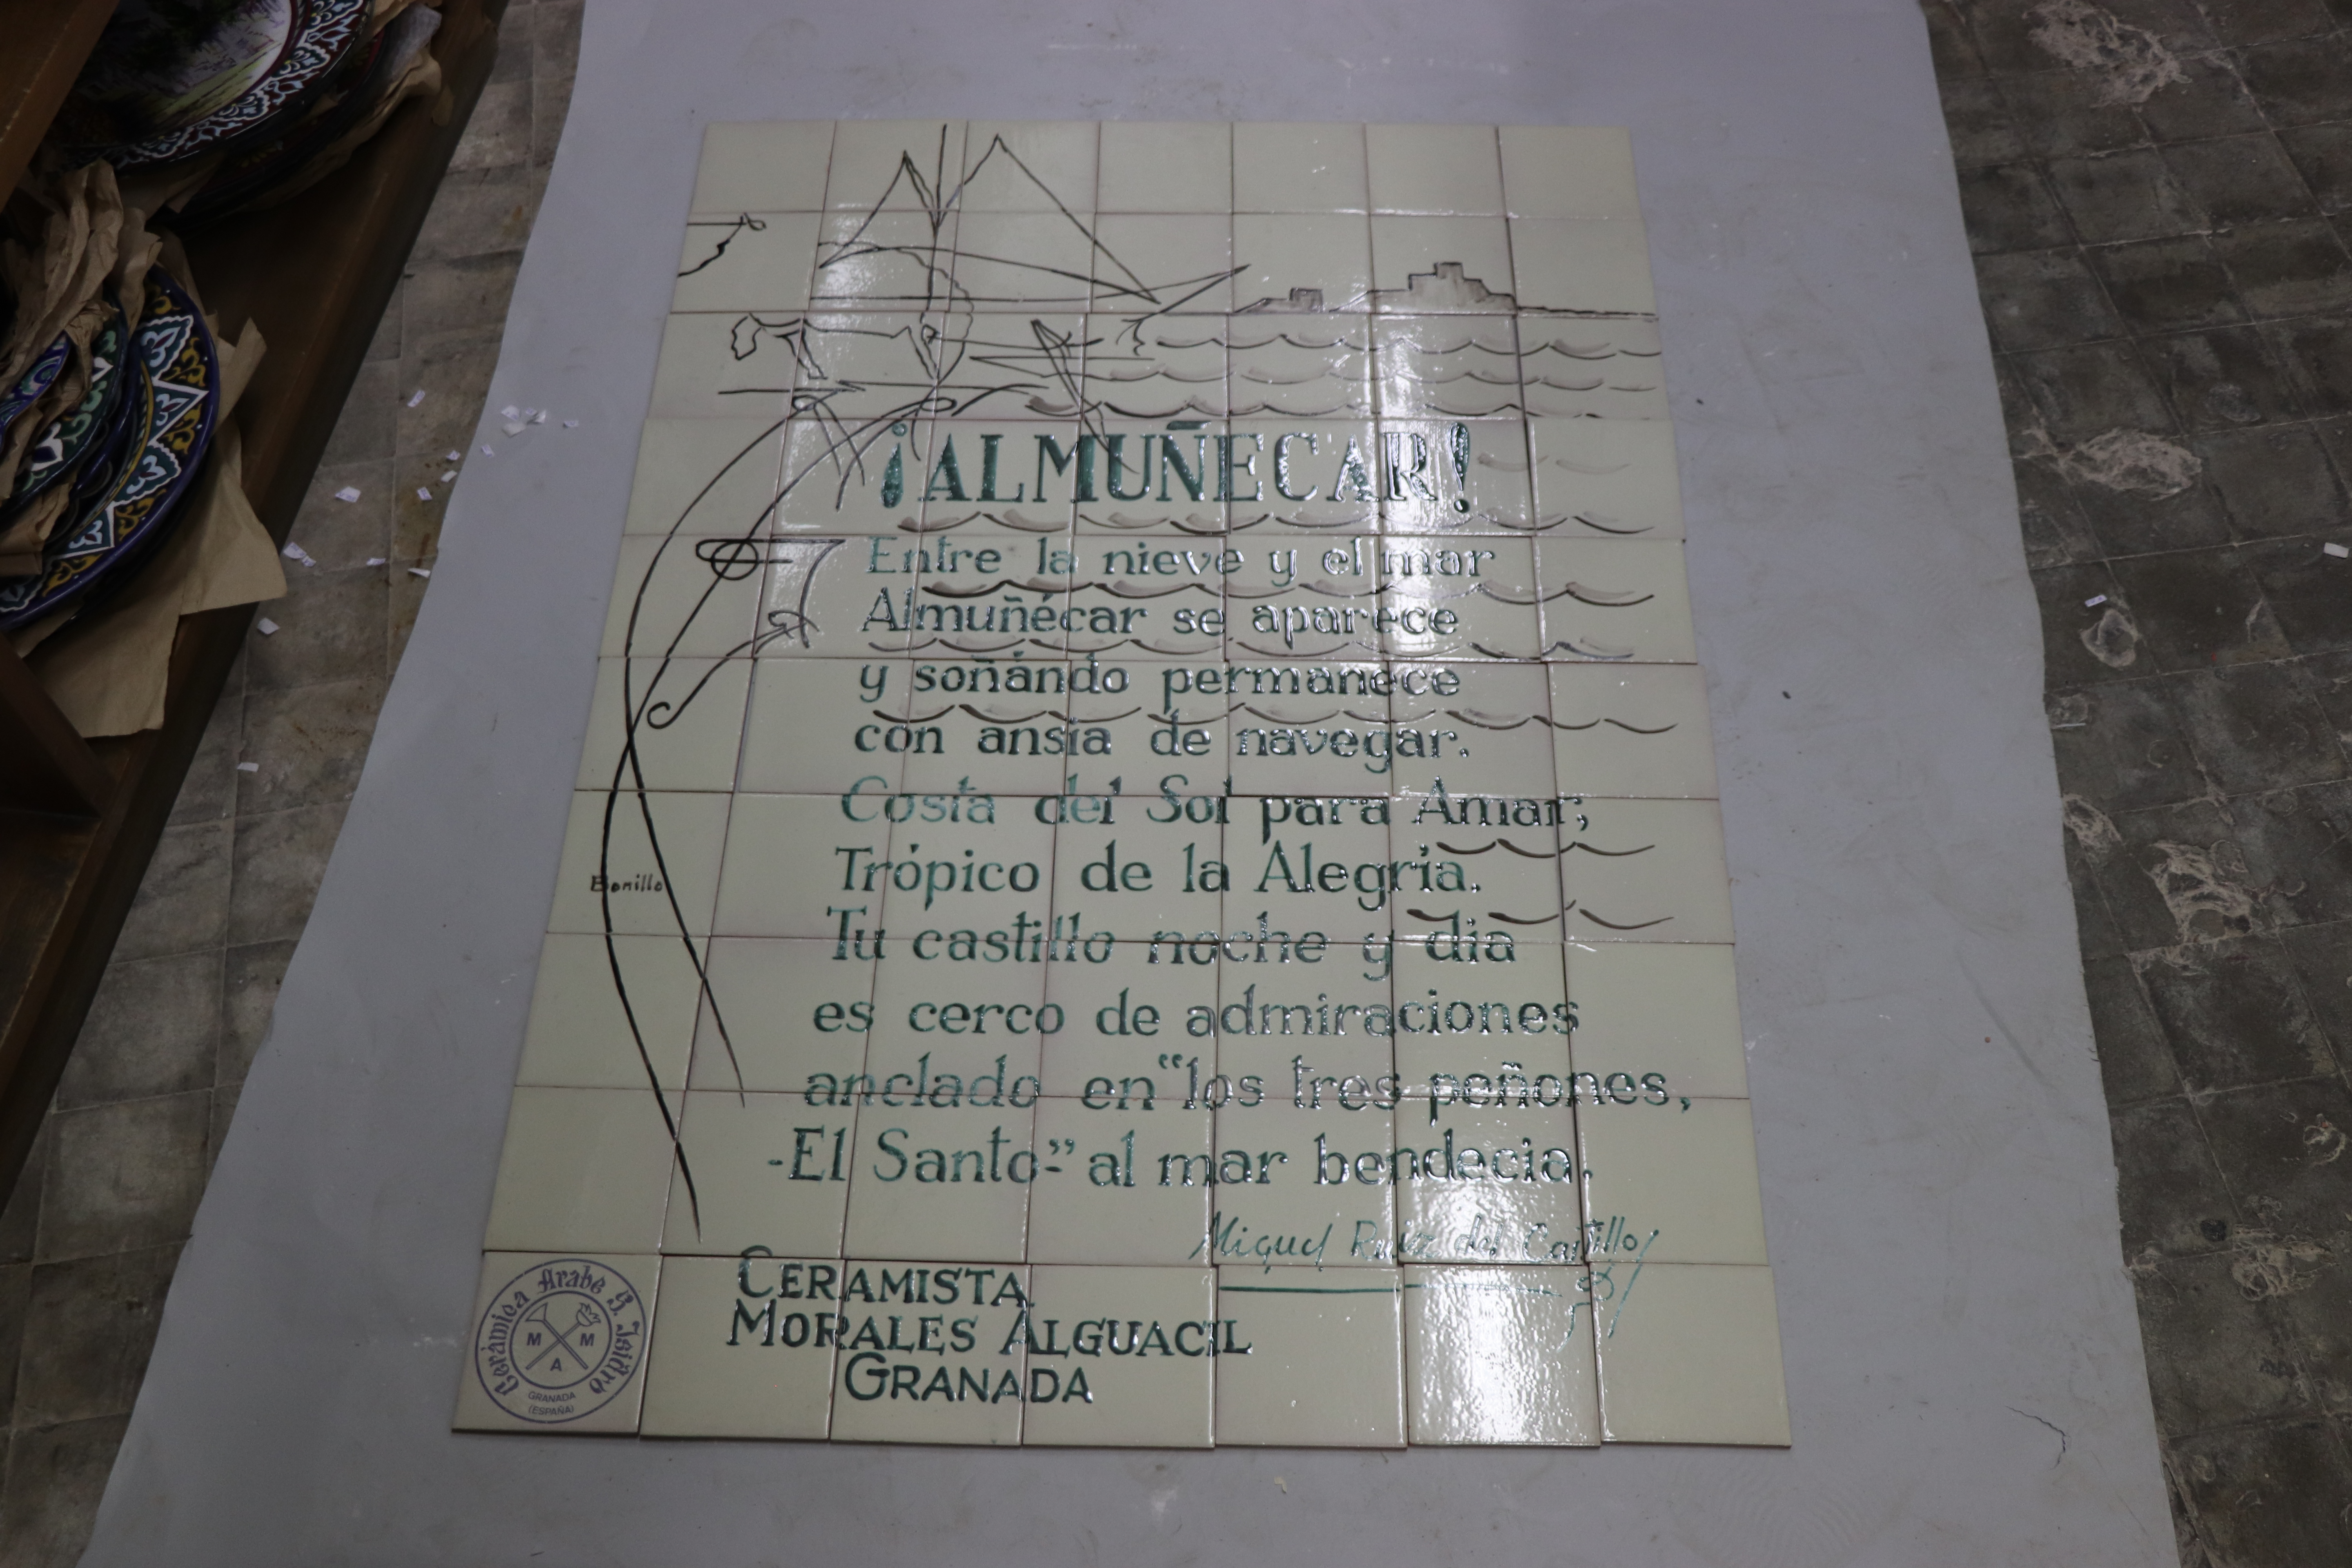 ¡ALMUÑECAR!
Entre la nieve y el mar
Almuñécar se aparece
y soñando permanece
con ansia de navegar.
Costa del Sol para Amar;
Trópico de la Alegría.
Tu castillo noche y dia
es cerco de admiraciones
anclado en "los tres peñones,
-El Santo-" al mar bendecia.
Bonillo
Miguel Ruiz del Castillo
CERAMISTA
MORALES ALGUACIL
GRANADA
Cerámica Arabe S. Isidro
M M
A
GRANADA
(ESPAÑA)